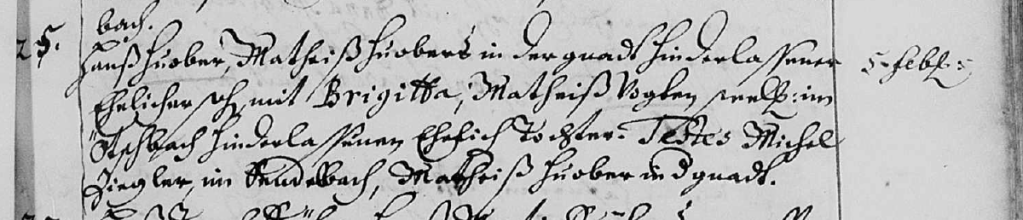 bach.
25. Hanß Huober, Matheiß Huobers in der gnadt hinderlassener 5 febr:
Ehelicher sohn mit Brigitta, Matheiß Voglen seelig: im
Ötschbach hinderlassenen Ehelich Tochter. Testes Michel
Ziegler im Sendelbach, Matheiß Huober in d gnadt.